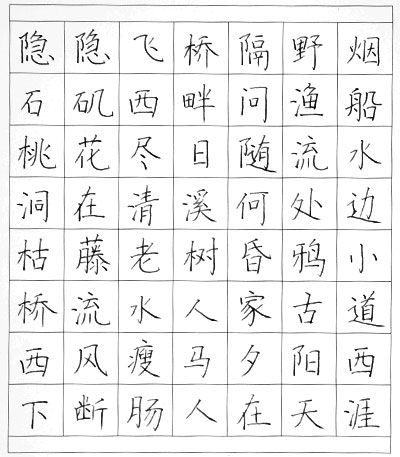 隐隐飞桥隔野烟
石矶西畔问渔船
桃花尽日随流水
洞在清溪何处边
枯藤老树昏鸦小
桥流水人家古道
西风瘦马夕阳西
下断肠人在天涯